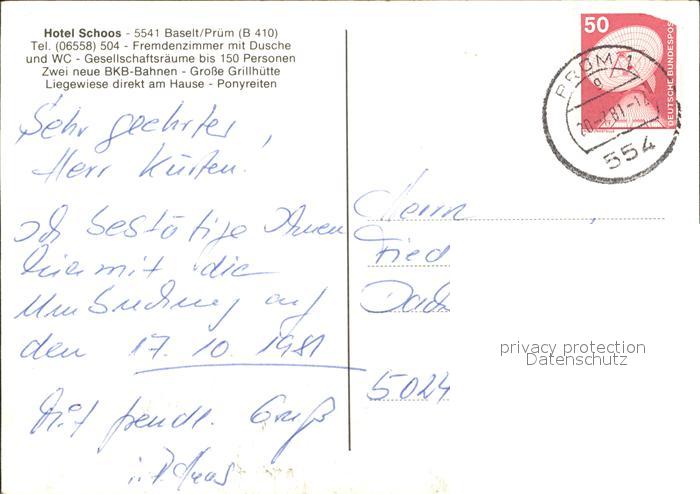 Hotel Schoos - 5541 Baselt/Prüm (B 410)
Tel. (06558) 504 - Fremdenzimmer mit Dusche
und WC - Gesellschaftsräume bis 150 Personen
Zwei neue BKB-Bahnen - Große Grillhütte
Liegewiese direkt am Hause - Ponyreiten
Sehr geehrter,
Herr Kürten.
Ich bestätige Ihnen
hiermit die
Umbuchung auf
den 17. 10. 1981
Mit freudl. Gruß
Herrn
Fried
5024
50
DEUTSCHE BUNDESPOST
PRÜM 1
554
privacy protection
Datenschutz